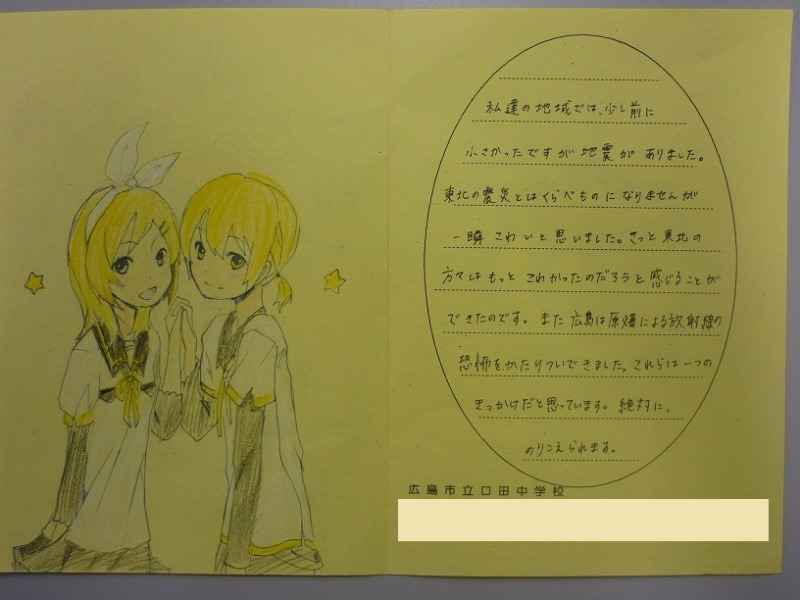 私達の地域では、少し前に
小さかったですが地震がありました。
東北の震災とはくらべものになりませんが
一瞬こわいと思いました。きっと東北の
方々はもっとこわかったのだろうと感じることが
できたのです。また広島は原爆による放射線の
恐怖をかたりついできました。これらは一つの
きっかけだと思っています。絶対に、
のりこえられます。
広島市立口田中学校